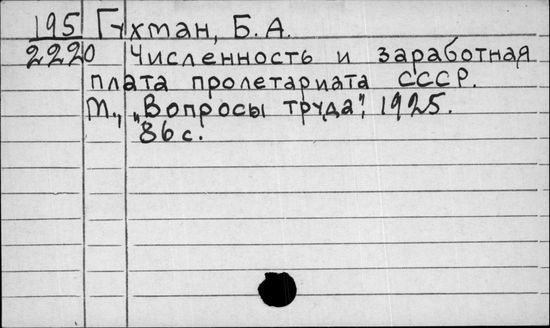 195 Гухман, Б.А.
2220 Численность и заработная
плата пролетариата СССР.
М., „Вопросы труда", 1925.
86 с.